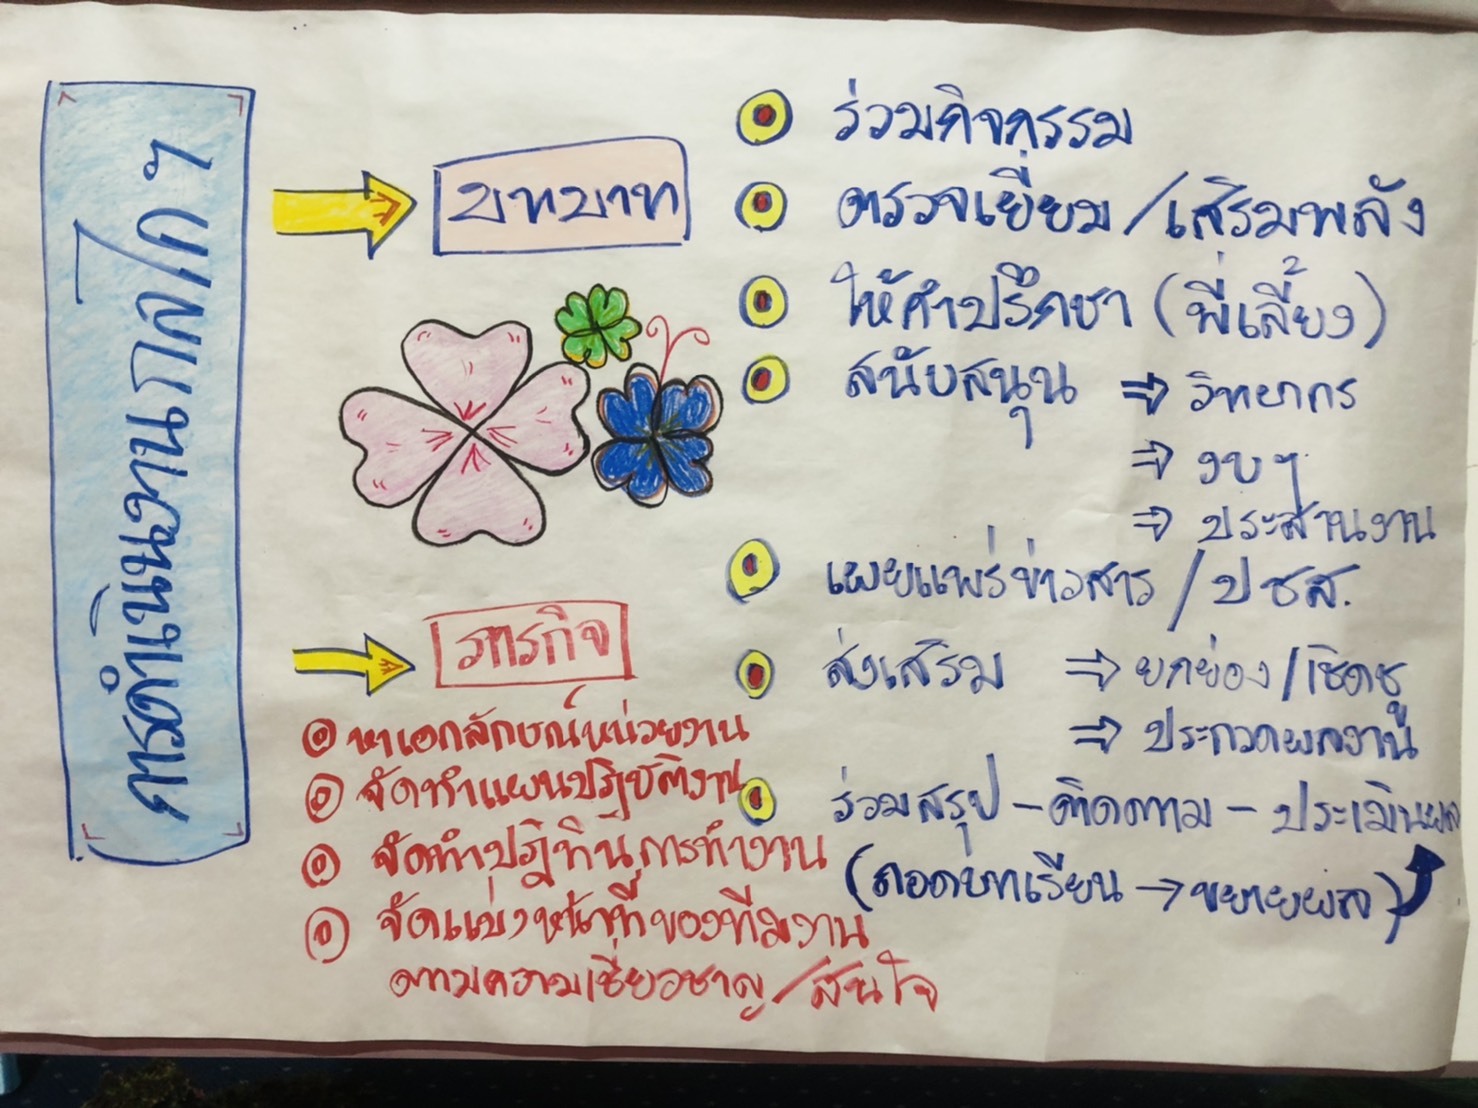 การดำเนินงาน กลไก ฯ
บทบาท
ร่วมกิจกรรม
ตรวจเยี่ยม/เสริมพลัง
ให้คำปรึกษา (พี่เลี้ยง)
สนับสนุน ⇒ วิทยากร
⇒ งบฯ
⇒ ประสานงาน
เผยแพร่ข่าวสาร / ปชส.
ส่งเสริม ⇒ ยกย่อง/เชิดชู
⇒ ประกวดผลงาน
ร่วมสรุป - ติดตาม - ประเมินผล
(ถอดบทเรียน → ขยายผล)
ภารกิจ
หาเอกลักษณ์หน่วยงาน
จัดทำแผนปฏิบัติงาน
จัดทำปฏิทินการทำงาน
จัดแบ่งหน้าที่ของทีมงาน
ตามความเชี่ยวชาญ/สนใจ